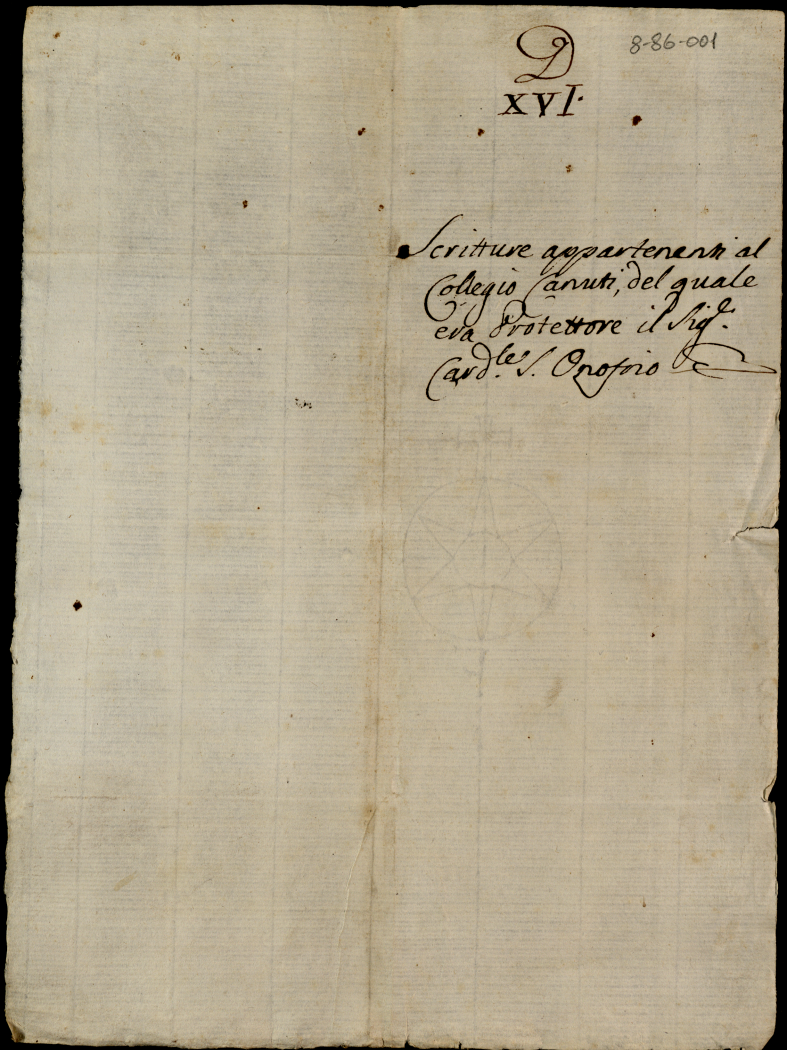 8-86-001
D
XVI.
Scritture appartenenti al
Collegio Canuti, del quale
era Protettore il Sig.r
Card.le S. Onofrio